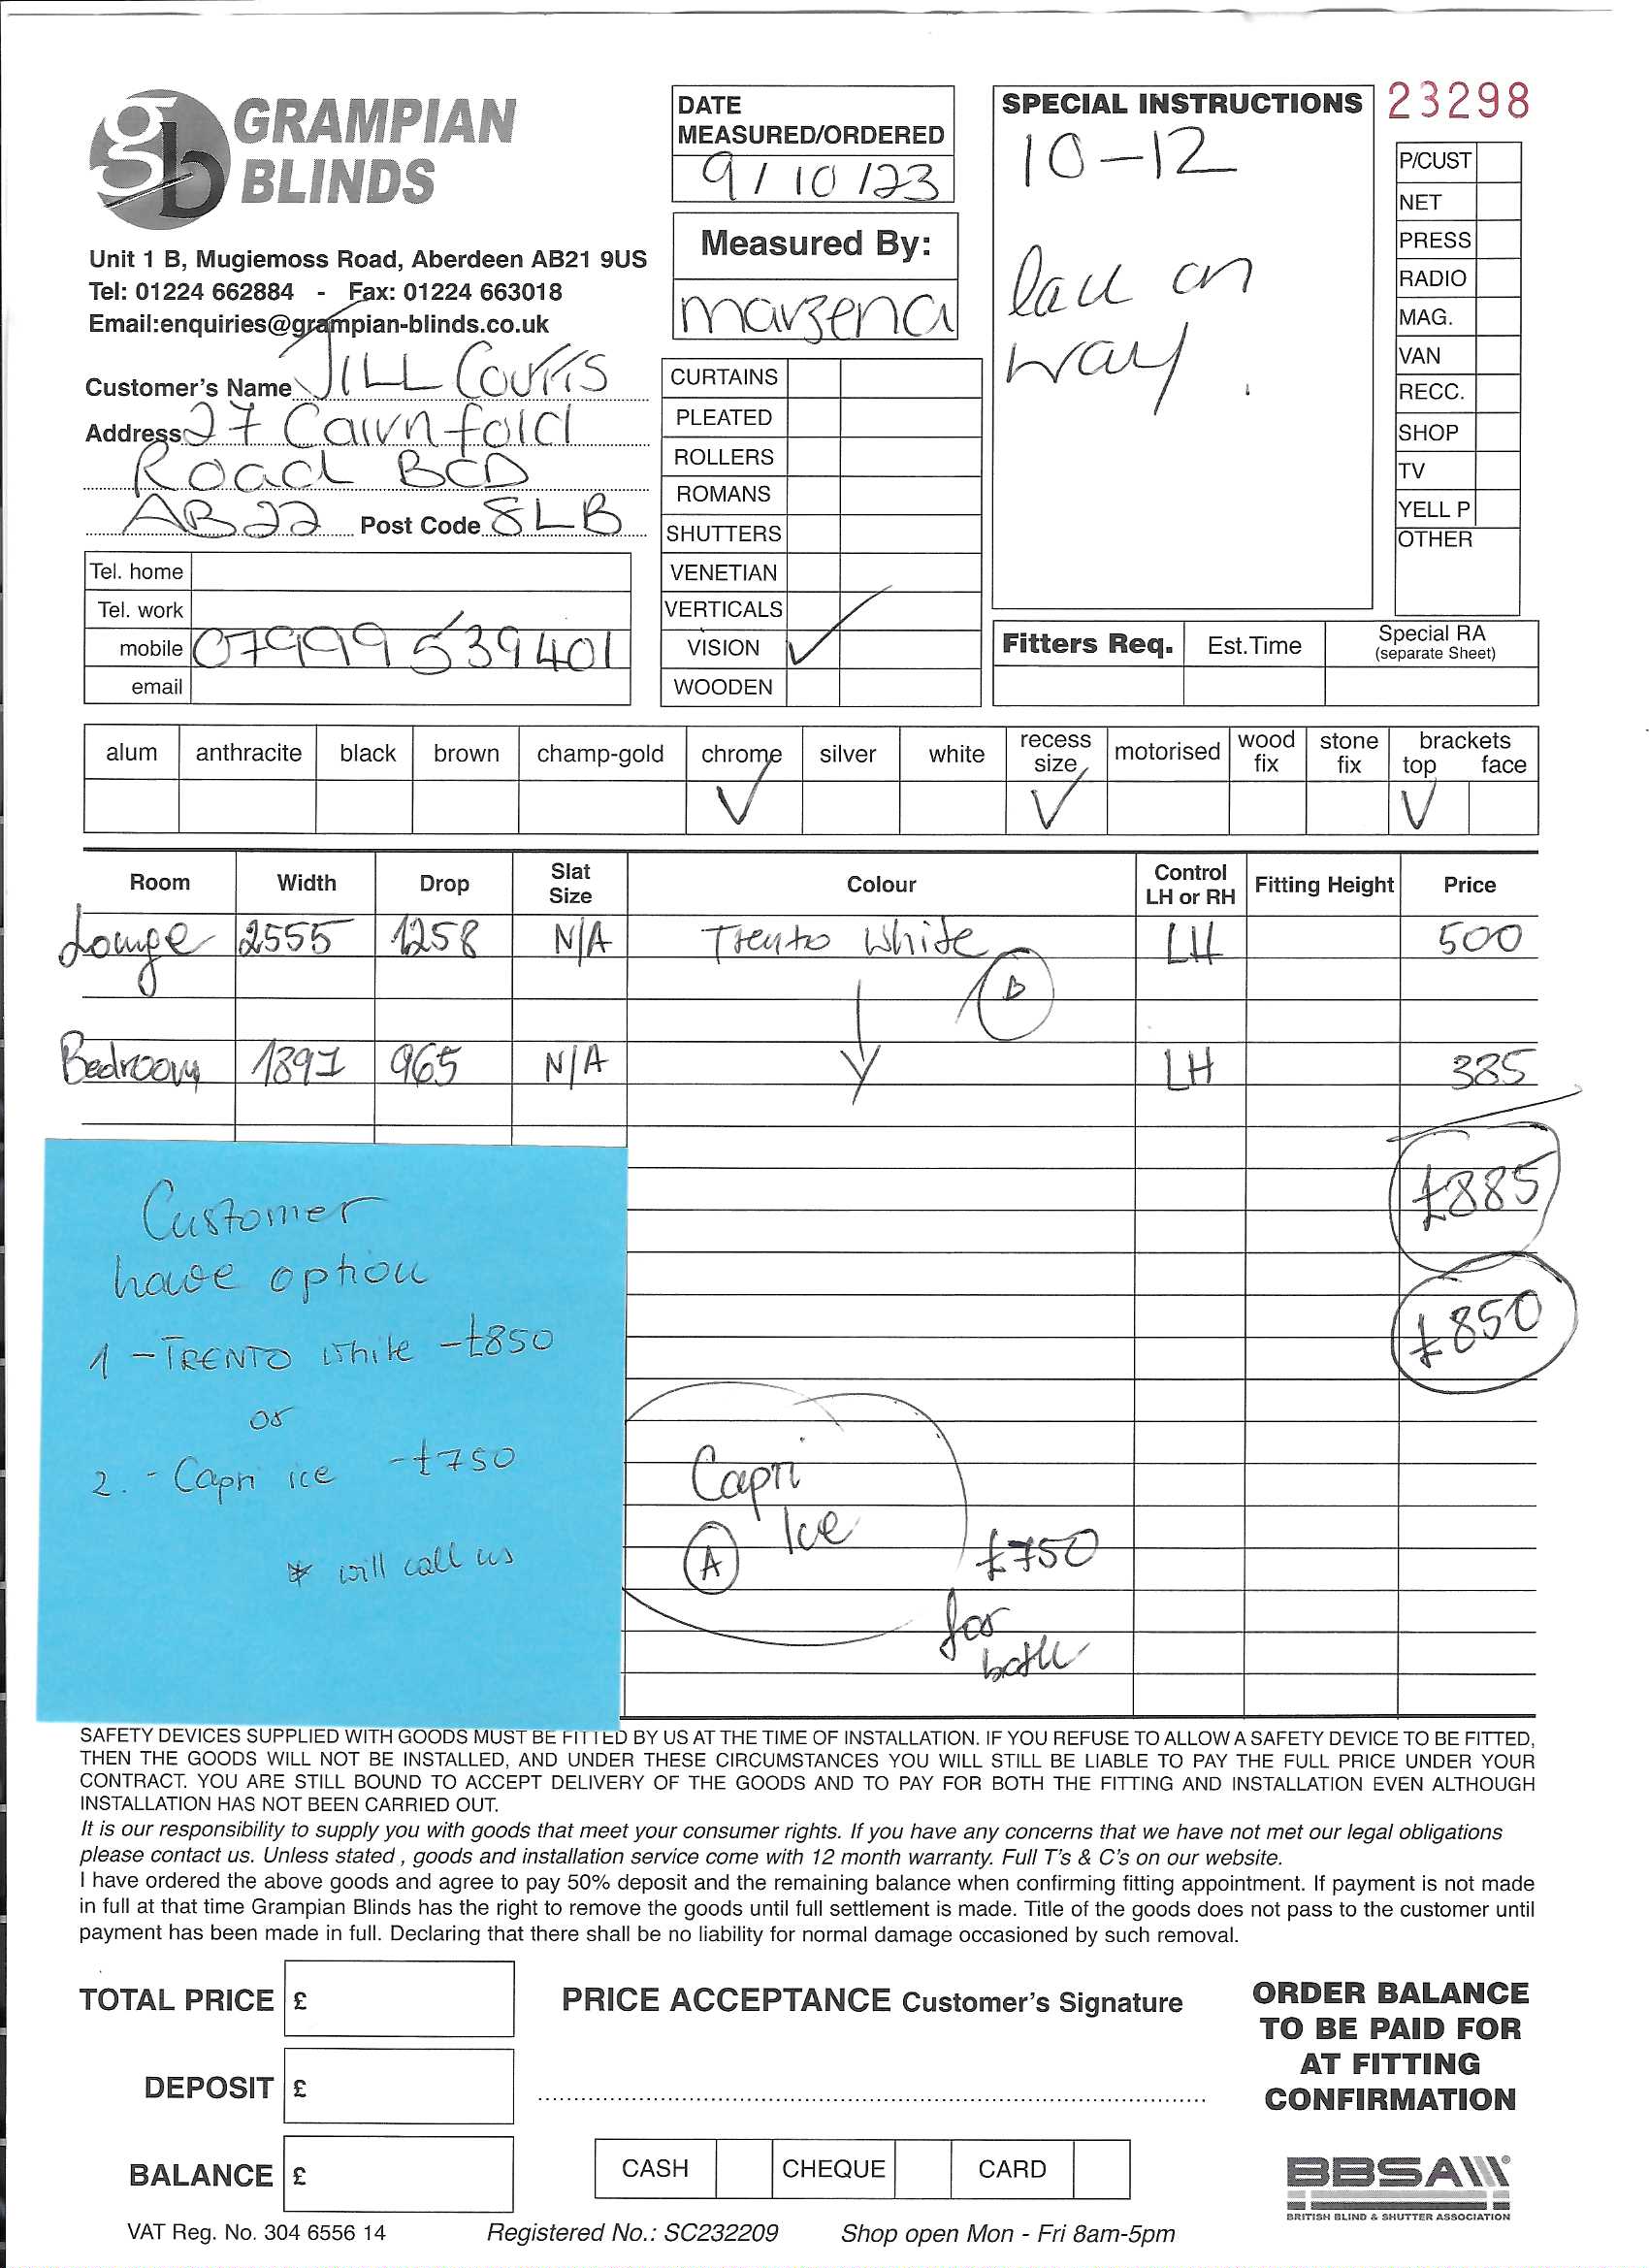 GRAMPIAN
BLINDS
Unit 1 B, Mugiemoss Road, Aberdeen AB21 9US
Tel: 01224 662884 - Fax: 01224 663018
Email:enquiries@grampian-blinds.co.uk
Customer's Name JILL COUTTS
Address 27 Cairnfold
Road BCD
AB22 Post Code 8LB
Tel. home
Tel. work
mobile 07999 539401
email
DATE
MEASURED/ORDERED
9/10/23
Measured By:
marzena
CURTAINS
PLEATED
ROLLERS
ROMANS
SHUTTERS
VENETIAN
VERTICALS
VISION ✓
WOODEN
SPECIAL INSTRUCTIONS
10-12
call on
way.
23298
P/CUST
NET
PRESS
RADIO
MAG.
VAN
RECC.
SHOP
TV
YELL P
OTHER
Fitters Req. Est.Time Special RA
(separate Sheet)
alum anthracite black brown champ-gold chrome silver white recess size motorised wood fix stone fix brackets top face
✓ ✓ ✓
Room Width Drop Slat Size Colour Control LH or RH Fitting Height Price
Lounge 2555 1258 N/A Trento White LH 500
B
Bedroom 1897 965 N/A LH 385
£885
£850
Customer
have option
1 - TRENTO white - £850
or
2. - Capri ice - £750
* will call us
Capri
Ice
A
£750
for
both
SAFETY DEVICES SUPPLIED WITH GOODS MUST BE FITTED BY US AT THE TIME OF INSTALLATION. IF YOU REFUSE TO ALLOW A SAFETY DEVICE TO BE FITTED,
THEN THE GOODS WILL NOT BE INSTALLED, AND UNDER THESE CIRCUMSTANCES YOU WILL STILL BE LIABLE TO PAY THE FULL PRICE UNDER YOUR
CONTRACT. YOU ARE STILL BOUND TO ACCEPT DELIVERY OF THE GOODS AND TO PAY FOR BOTH THE FITTING AND INSTALLATION EVEN ALTHOUGH
INSTALLATION HAS NOT BEEN CARRIED OUT.
It is our responsibility to supply you with goods that meet your consumer rights. If you have any concerns that we have not met our legal obligations
please contact us. Unless stated , goods and installation service come with 12 month warranty. Full T's & C's on our website.
I have ordered the above goods and agree to pay 50% deposit and the remaining balance when confirming fitting appointment. If payment is not made
in full at that time Grampian Blinds has the right to remove the goods until full settlement is made. Title of the goods does not pass to the customer until
payment has been made in full. Declaring that there shall be no liability for normal damage occasioned by such removal.
TOTAL PRICE £
DEPOSIT £
BALANCE £
PRICE ACCEPTANCE Customer's Signature
CASH CHEQUE CARD
ORDER BALANCE
TO BE PAID FOR
AT FITTING
CONFIRMATION
BBSA
BRITISH BLIND & SHUTTER ASSOCIATION
VAT Reg. No. 304 6556 14 Registered No.: SC232209 Shop open Mon - Fri 8am-5pm